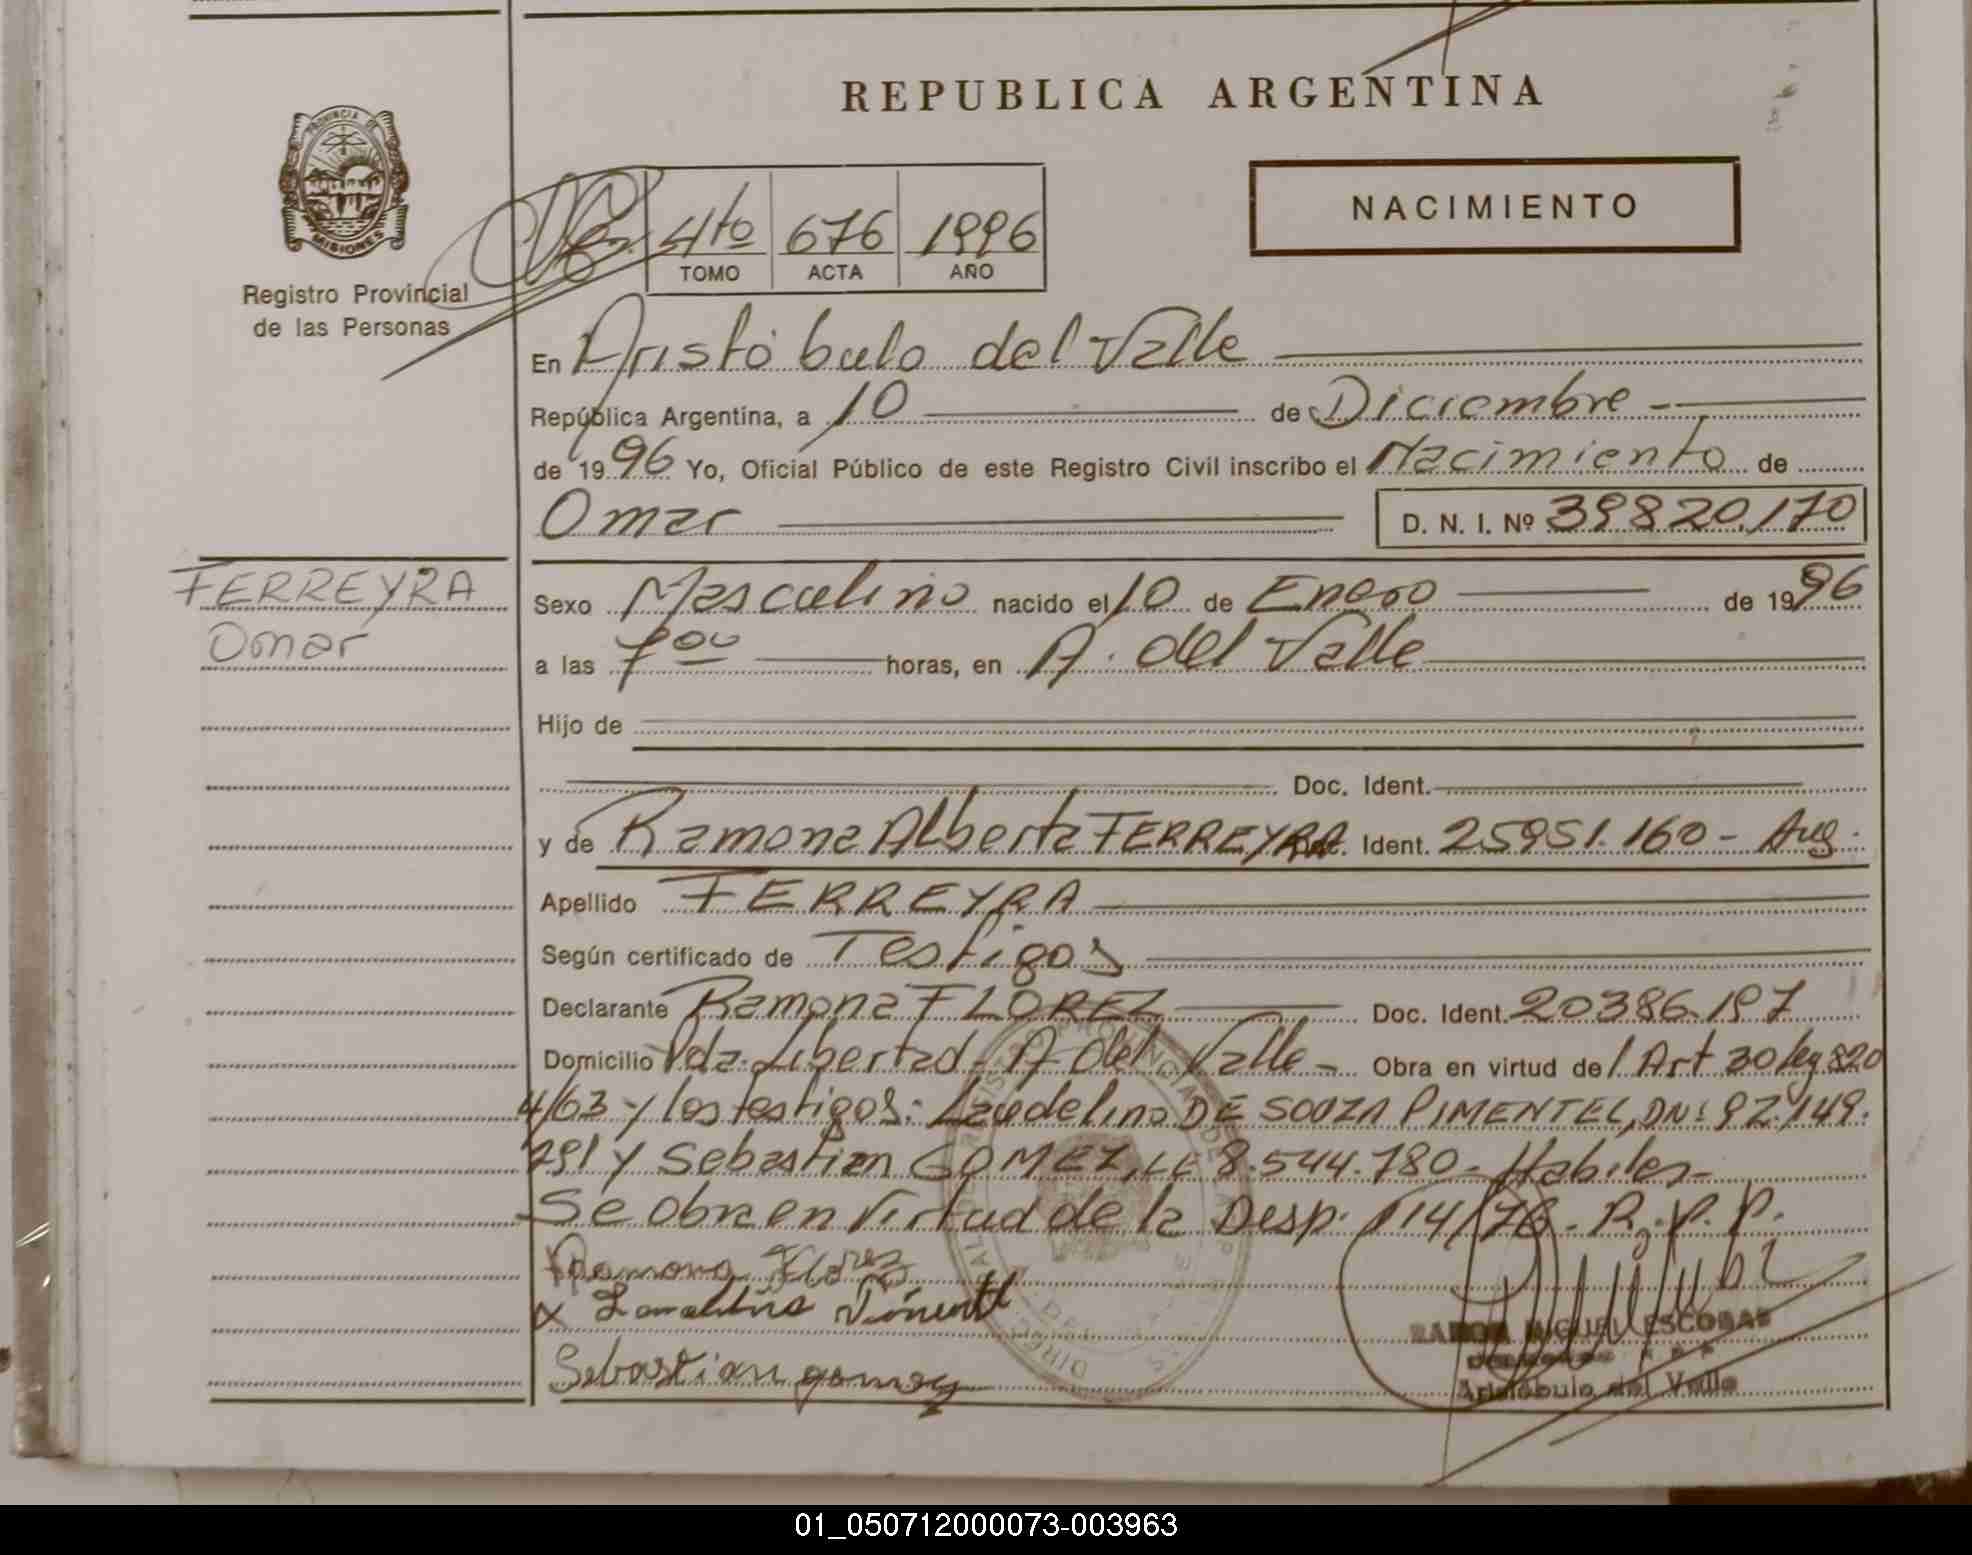 REPUBLICA ARGENTINA
PROVINCIA DE
MISIONES
Registro Provincial
de las Personas
4to 676 1996
TOMO ACTA AÑO
NACIMIENTO
En Aristóbulo del Valle
República Argentina, a 10 de Diciembre
de 1996 Yo, Oficial Público de este Registro Civil inscribo el Nacimiento de
Omar D. N. I. Nº 39820.170
FERREYRA
Omar
Sexo Masculino nacido el 10 de Enero de 1996
a las 7 00 horas, en A. del Valle
Hijo de
Doc. Ident.
y de Ramona Alberta FERREYRA Doc. Ident. 25951.160 - Arg.
Apellido FERREYRA
Según certificado de Testigos
Declarante Ramona FLOREZ Doc. Ident. 20386.197
Domicilio Pda. Libertad - A del Valle - Obra en virtud de Art 30 ley 820
4/63 y los testigos: Laudelino DE SOUZA PIMENTEL, DNI 92.149.
791 y Sebastian GOMEZ, LE 8.544.780 - Habiles -
Se obra en Virtud de la Desp. 114/76 - R.P.P.
Ramona Florez
x Laudelino Piment
Sebastian gomez
RAMON MIGUEL ESCOBAR
Aristóbulo del Valle
01_050712000073-003963